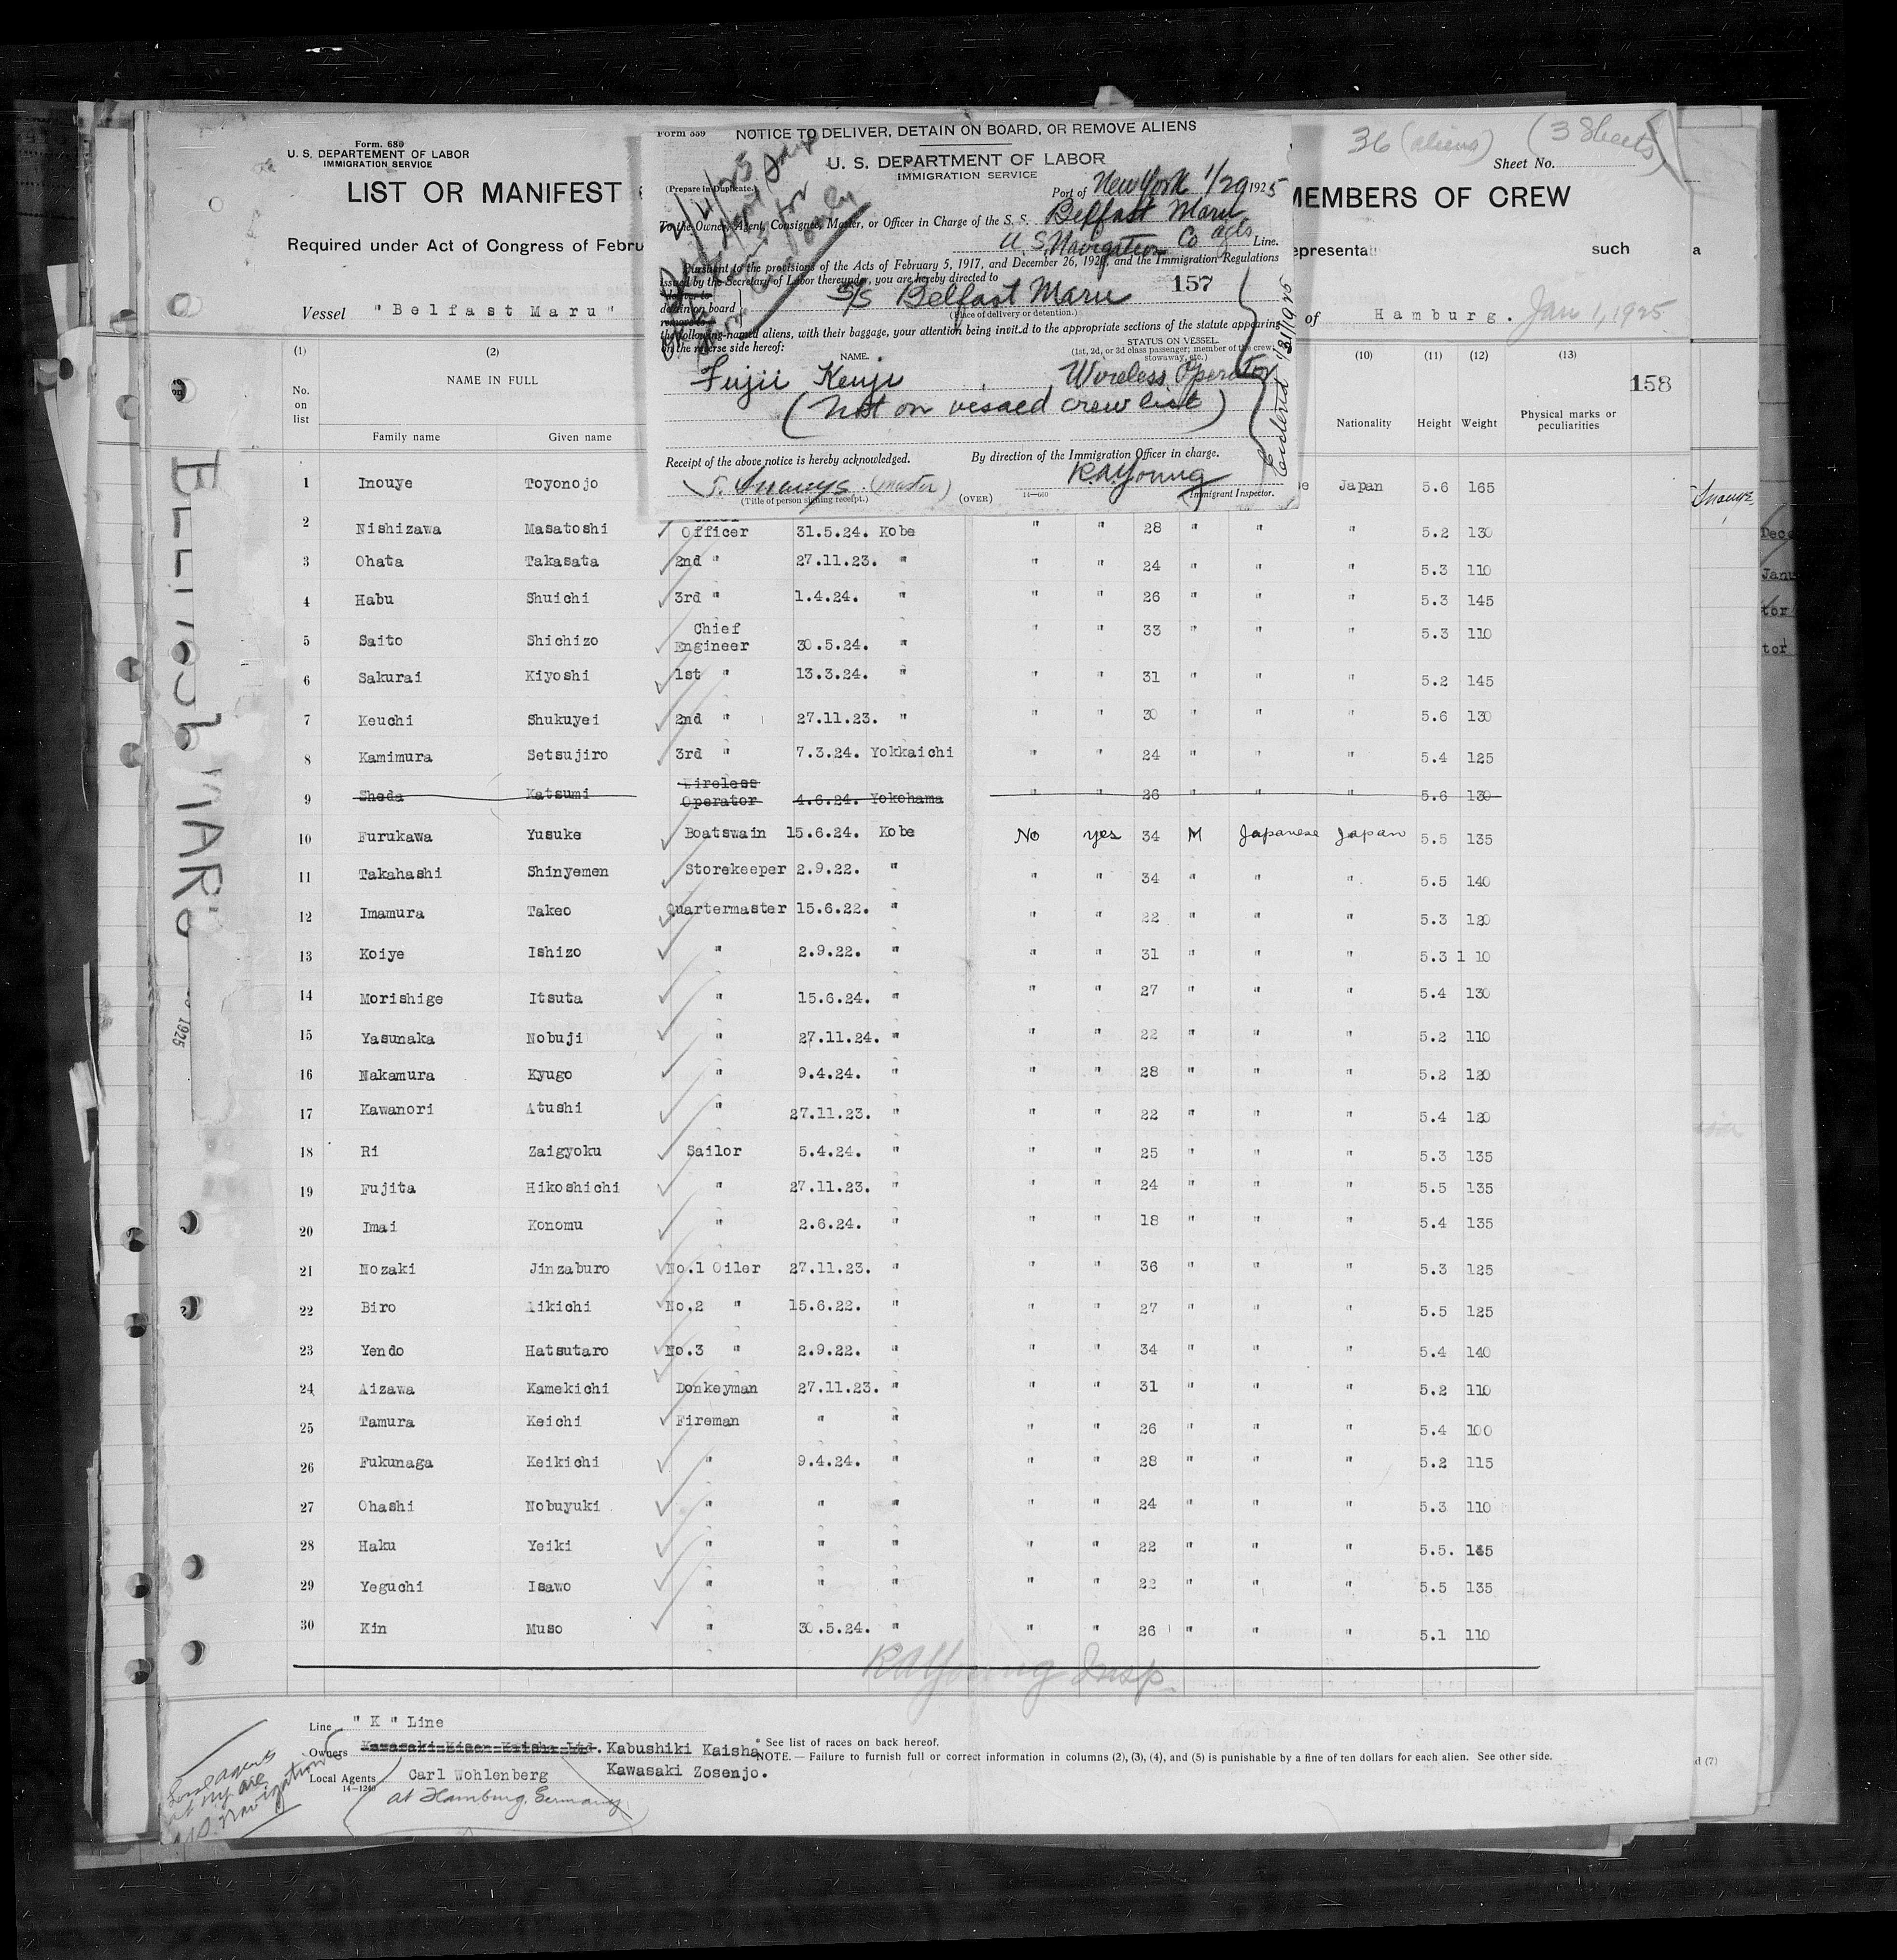 Form. 680
U. S. DEPARTEMENT OF LABOR
IMMIGRATION SERVICE
LIST OR MANIFEST
Required under Act of Congress of Febru
Vessel "Belfast Maru"
Form 559
NOTICE TO DELIVER, DETAIN ON BOARD, OR REMOVE ALIENS
U. S. DEPARTMENT OF LABOR
IMMIGRATION SERVICE
(Prepare in Duplicate.)
Port of New York 1/29 1925
To the Owner, Agent, Consignee, Master, or Officer in Charge of the S. S. Belfast Maru
U.S. Navigation Co agts Line.
Pursuant to the provisions of the Acts of February 5, 1917, and December 26, 1920, and the Immigration Regulations
issued by the Secretary of Labor thereunder, you are hereby directed to
157
deliver to
detain on board
remove to
S/S Belfast Maru
(Place of delivery or detention.)
the following-named aliens, with their baggage, your attention being invit.d to the appropriate sections of the statute appearing
on the reverse side hereof:
NAME.
STATUS ON VESSEL.
(1st, 2d, or 3d class passenger; member of the crew; stowaway, etc.)
Fujii Kenji Wireless Operator
(Not on visaed crew list)
Receipt of the above notice is hereby acknowledged.
By direction of the Immigration Officer in charge.
T. Inouye (master)
(Title of person signing receipt.)
(OVER)
14—660
R.A. Young
Immigrant Inspector.
36 (aliens) (3 Sheets)
Sheet No.
MEMBERS OF CREW
representati such a
of Hamburg. Jan 1, 1925
158
(1) (2) (10) (11) (12) (13)
No. on list
NAME IN FULL
Family name Given name
Nationality Height Weight Physical marks or peculiarities
1 Inouye Toyonojo Japan 5.6 165
2 Nishizawa Masatoshi Officer 31.5.24. Kobe " " 28 " " " 5.2 130
3 Ohata Takasata 2nd " 27.11.23. " " " 24 " " " 5.3 110
4 Habu Shuichi 3rd " 1.4.24. " " " 26 " " " 5.3 145
5 Saito Shichizo Chief Engineer 30.5.24. " " " 33 " " " 5.3 110
6 Sakurai Kiyoshi 1st " 13.3.24. " " " 31 " " " 5.2 145
7 Keuchi Shukuyei 2nd " 27.11.23. " " " 30 " " " 5.6 130
8 Kamimura Setsujiro 3rd " 7.3.24. Yokkaichi " " 24 " " " 5.4 125
9 Sheda Katsumi Wireless Operator 4.6.24. Yokohama " " 26 " " " 5.6 130
10 Furukawa Yusuke Boatswain 15.6.24. Kobe No yes 34 M Japanese Japan 5.5 135
11 Takahashi Shinyemen Storekeeper 2.9.22. " " " 34 " " " 5.5 140
12 Imamura Takeo Quartermaster 15.6.22. " " " 22 " " " 5.3 120
13 Koiye Ishizo " 2.9.22. " " " 31 " " " 5.3 1 10
14 Morishige Itsuta " 15.6.24. " " " 27 " " " 5.4 130
15 Yasunaka Nobuji " 27.11.24. " " " 22 " " " 5.2 110
16 Nakamura Kyugo " 9.4.24. " " " 28 " " " 5.2 120
17 Kawanori Atushi " 27.11.23. " " " 22 " " " 5.4 120
18 Ri Zaigyoku Sailor 5.4.24. " " " 25 " " " 5.3 135
19 Fujita Hikoshichi " 27.11.23. " " " 24 " " " 5.5 135
20 Imai Konomu " 2.6.24. " " " 18 " " " 5.4 135
21 Nozaki Jinzaburo No.1 Oiler 27.11.23. " " " 36 " " " 5.3 125
22 Biro Aikichi No.2 " 15.6.22. " " " 27 " " " 5.5 125
23 Yendo Hatsutaro No.3 " 2.9.22. " " " 34 " " " 5.4 140
24 Aizawa Kamekichi Donkeyman 27.11.23. " " " 31 " " " 5.2 110
25 Tamura Keichi Fireman " " " " 26 " " " 5.4 100
26 Fukunaga Keikichi " 9.4.24. " " " 28 " " " 5.2 115
27 Ohashi Nobuyuki " " " " " 24 " " " 5.3 110
28 Haku Yeiki " " " " " 22 " " " 5.5. 145
29 Yeguchi Isawo " " " " " 22 " " " 5.5 135
30 Kin Muso " 30.5.24. " " " 26 " " " 5.1 110
RAYoung Insp.
Line " K " Line
Owners Kawasaki Kisen Kaisha Ltd. Kabushiki Kaisha
Kawasaki Zosenjo.
Local Agents Carl Wohlenberg
14—1240
at Hamburg, Germany
Local agents
at NY are
U.S. Navigation
* See list of races on back hereof.
NOTE.—Failure to furnish full or correct information in columns (2), (3), (4), and (5) is punishable by a fine of ten dollars for each alien. See other side.
MARU
1925
Inouye
Dece
Janu
tor
tor
d (7)